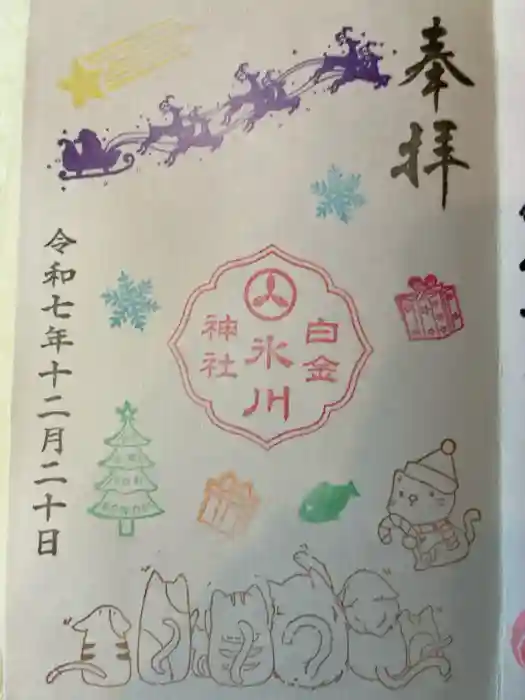 奉拝
白金
氷川
神社
令和七年十二月二十日